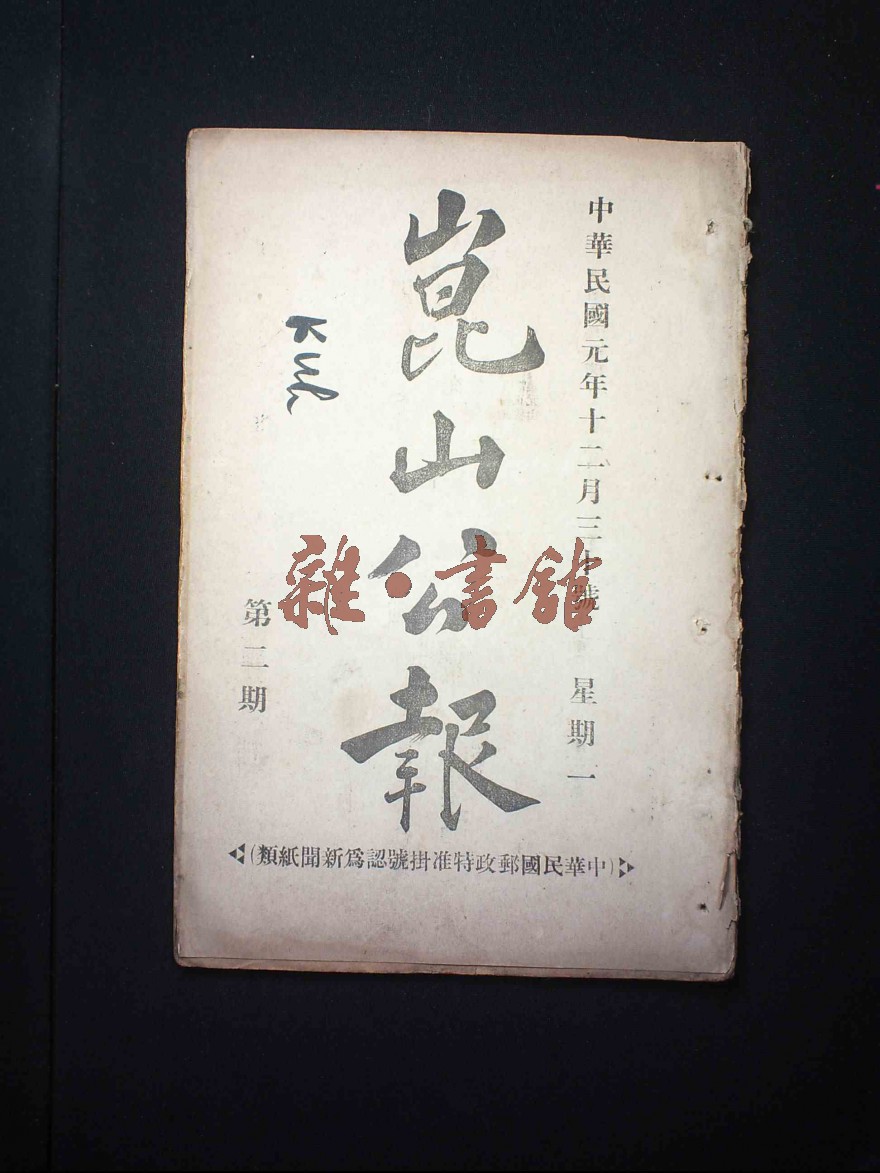 中華民國元年十二月三十號 星期一
崑山公報
第二期
(中華民國郵政特准掛號認爲新聞紙類)
雜·書館